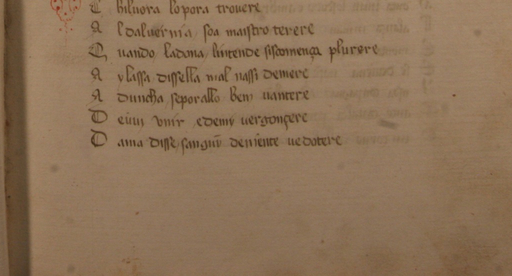 E biluora lo pora trouere
A l daluernia soa maistro terere
Q uando ladona lintende siscomença plurore
A y lassa dissella mal nassi demere
A duncha se porallo ben uantere
D e uiuy unir e demy uergonçere
D ama disse sanguin de niente ue dotere